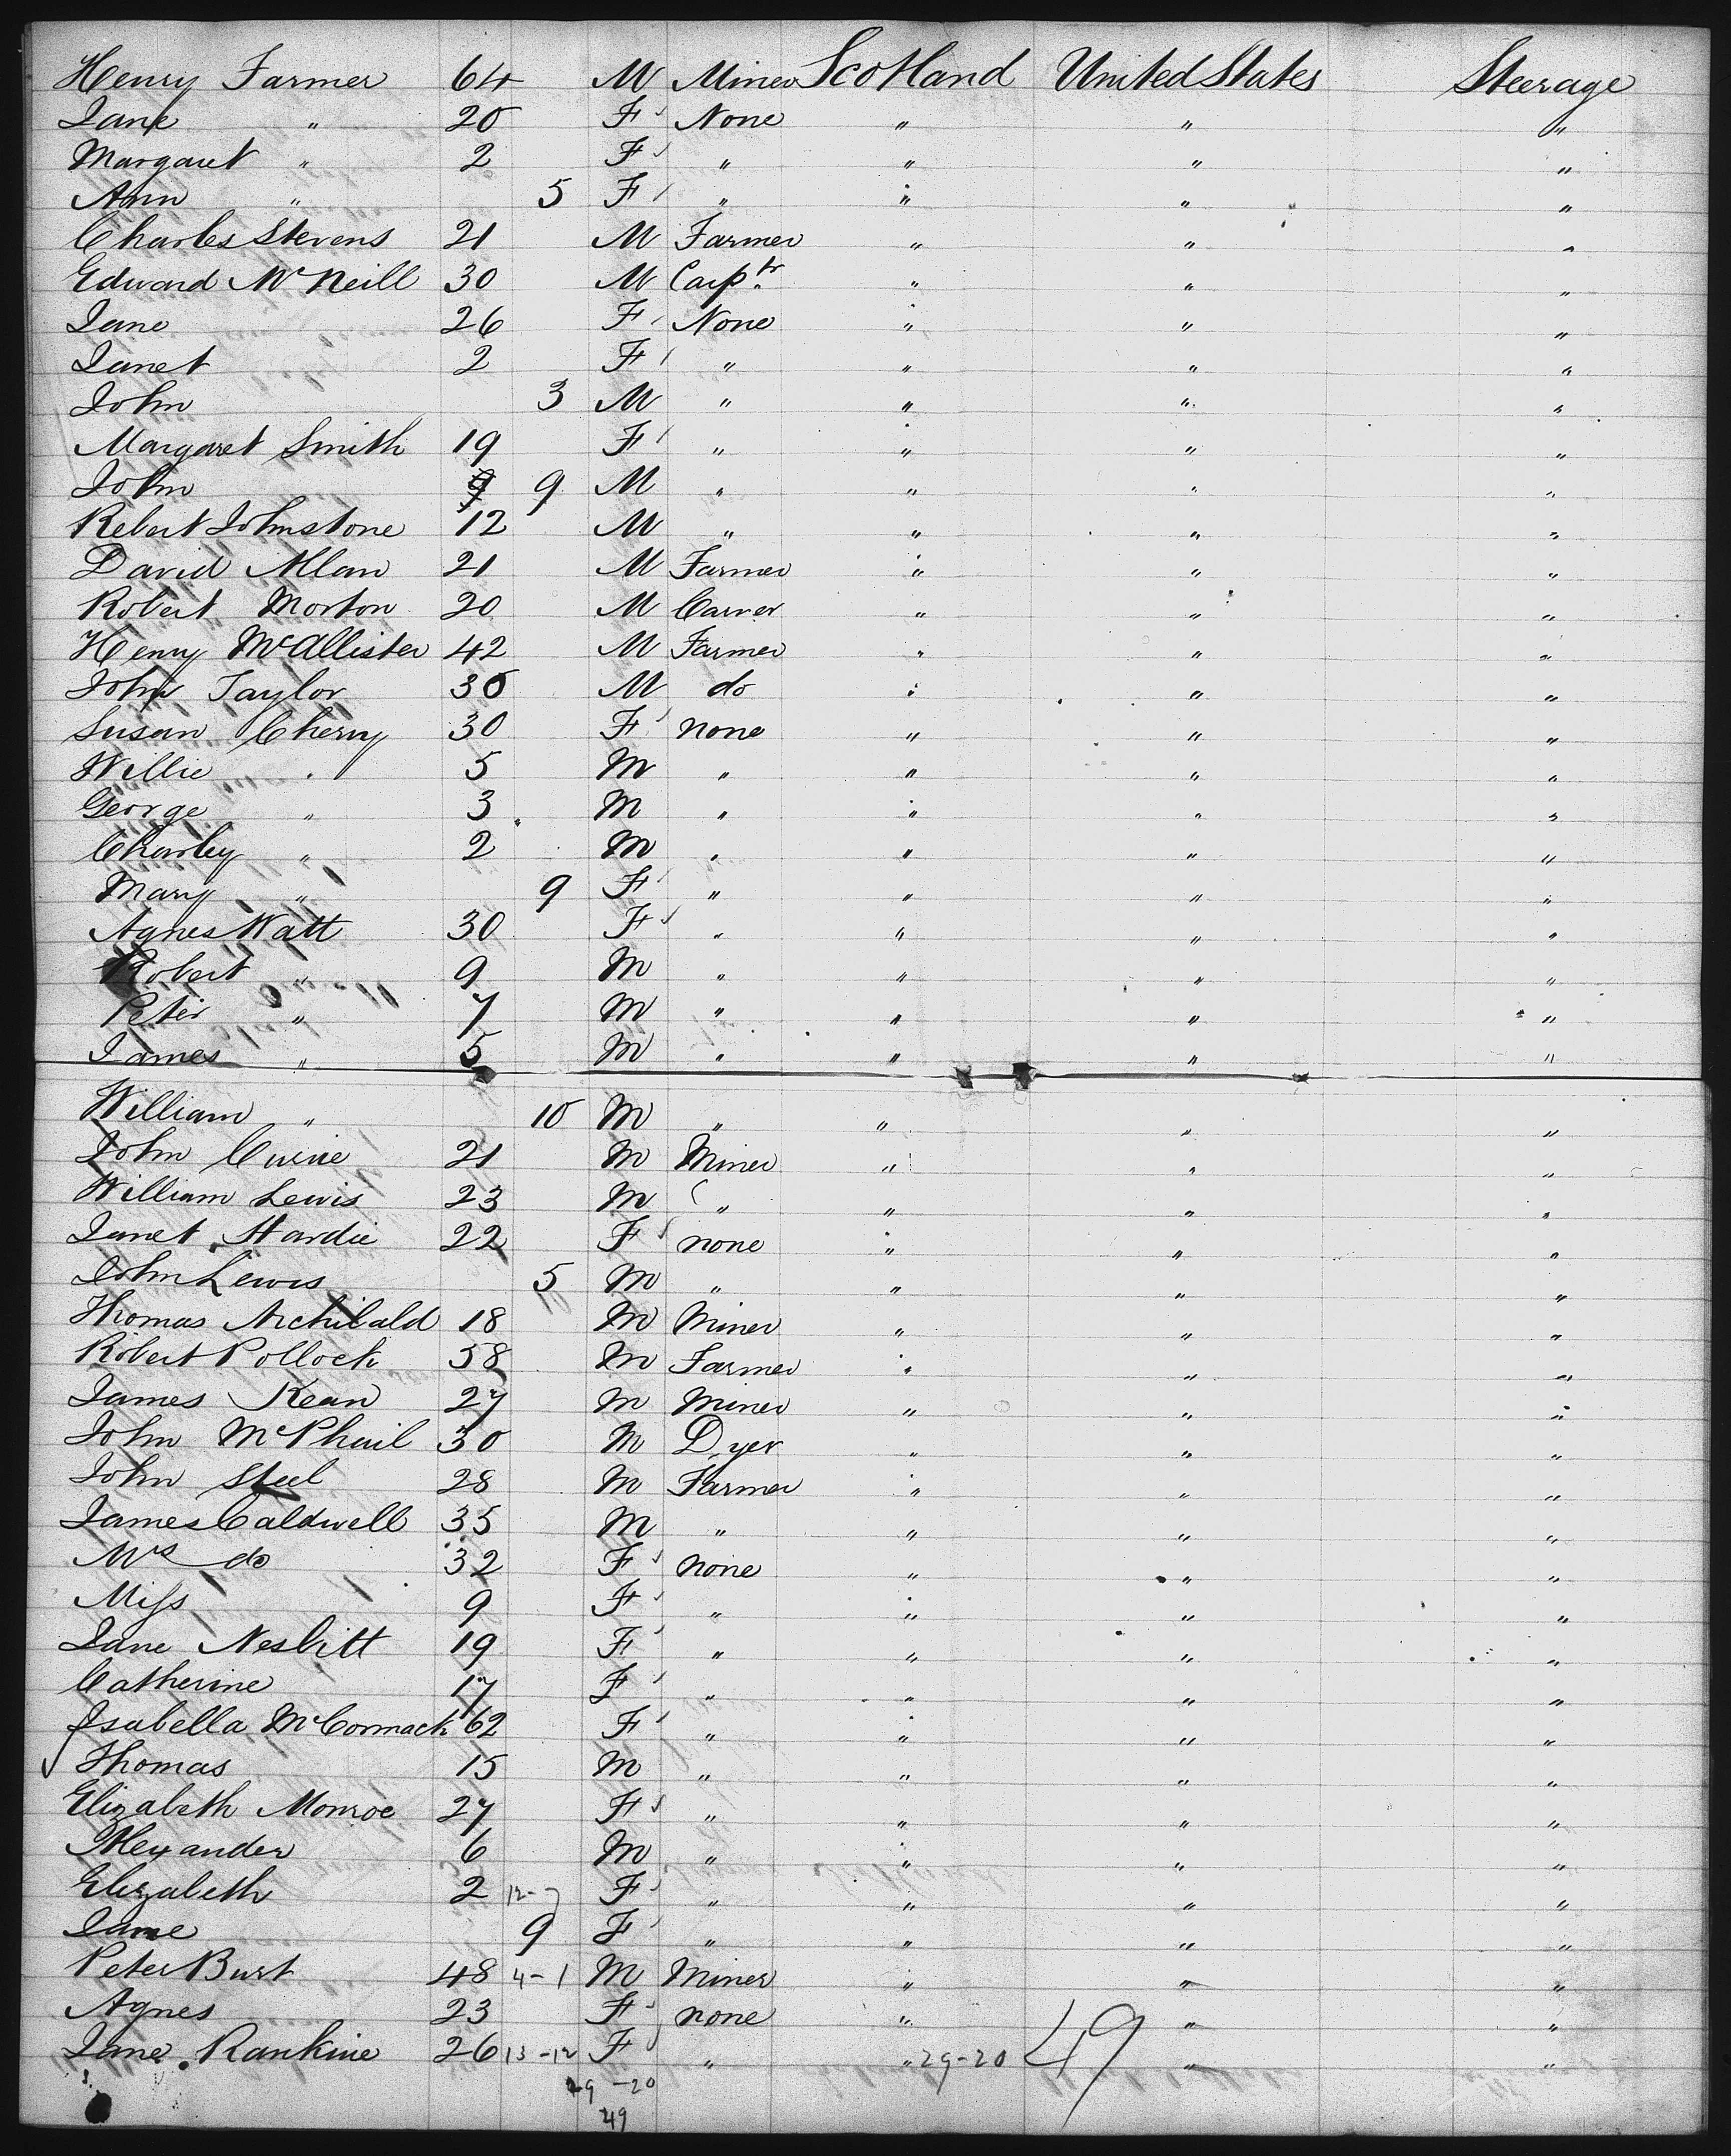 Henry Farmer 64 M Miner Scotland United States Steerage
Jane " 20 F None " " "
Margaret " 2 F " " " "
Ann " 5 F " " " "
Charles Stevens 21 M Farmer " " "
Edward McNeill 30 M Carptr " " "
Jane 26 F None " " "
Janet 2 F " " " "
John 3 M " " " "
Margaret Smith 19 F " " " "
John 9 9 M " " " "
Robert Johnstone 12 M " " " "
David Allan 21 M Farmer " " "
Robert Morton 20 M Carver " " "
Henry McAllister 42 M Farmer " " "
John Taylor 30 M do " " "
Susan Cherry 30 F none " " "
Willie " 5 M " " " "
George " 3 M " " " "
Charley " 2 M " " " "
Mary " 9 F " " " "
Agnes Watt 30 F " " " "
Robert " 9 M " " " "
Peter " 7 M " " " "
James " 5 M " " " "
William " 10 M " " " "
John Currie 21 M Miner " " "
William Lewis 23 M " " " "
Janet Hardie 22 F none " " "
John Lewis 5 M " " " "
Thomas Archibald 18 M Miner " " "
Robert Pollock 58 M Farmer " " "
James Kean 27 M Miner " " "
John McPhail 30 M Dyer " " "
John Steel 28 M Farmer " " "
James Caldwell 35 M " " " "
Mrs do 32 F none " " "
Miss 9 F " " " "
Jane Nesbitt 19 F " " " "
Catherine 17 F " " " "
Isabella McCormack 62 F " " " "
Thomas 15 M " " " "
Elizabeth Monroe 27 F " " " "
Alexander 6 M " " " "
Elizabeth 2 12-7 F " " " "
Jane 9 F " " " "
Peter Burt 48 4-1 M Miner " " "
Agnes 23 F none " " "
Jane Rankine 26 13-12 F " " 29-20 49 " "
29-20
49